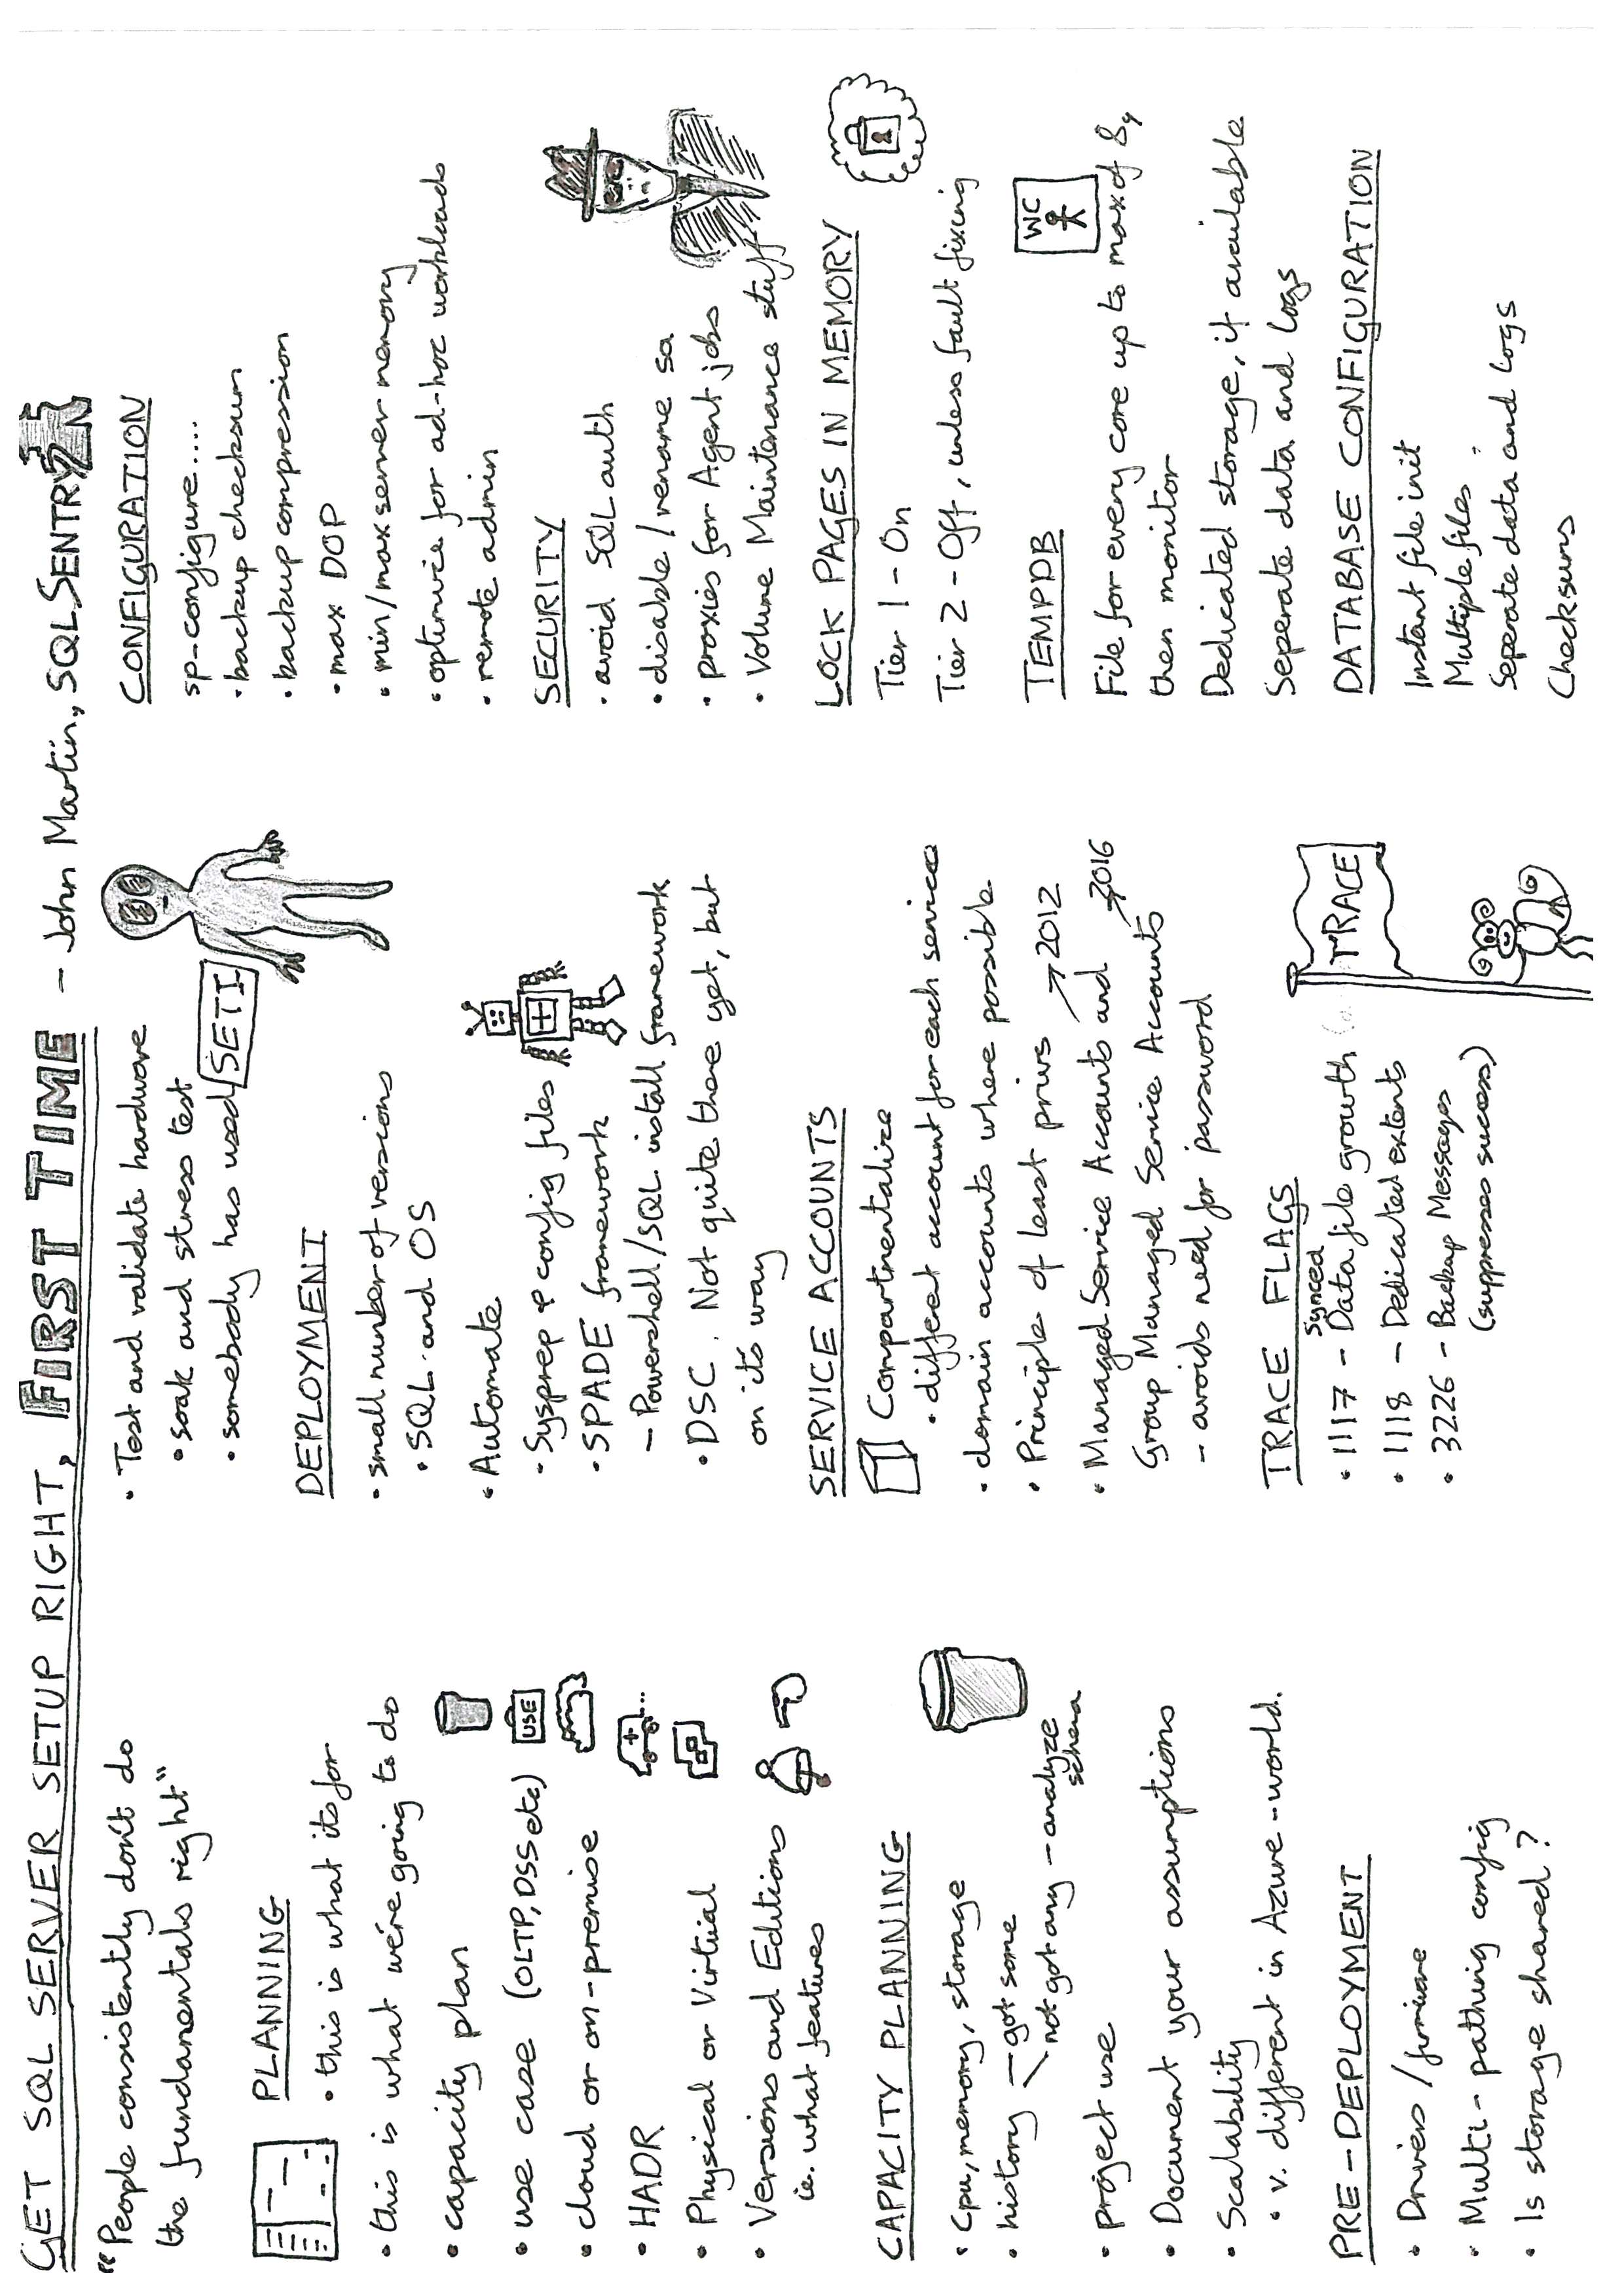 GET SQL SERVER SETUP RIGHT, FIRST TIME - John Martin, SQLSENTRY
"People consistently don't do
the fundamentals right"
PLANNING
• this is what its for
• this is what we're going to do
• capacity plan
• use case (OLTP, DSS etc)
USE
• cloud or on-premise
• HADR
• Physical or Virtual
• Versions and Editions
ie. what features
CAPACITY PLANNING
• Cpu, memory, storage
• history - got some
not got any - analyze
schema
• project use
• Document your assumptions
• Scalability
• v. different in Azure-world.
PRE-DEPLOYMENT
• Drivers / firmware
• Multi-pathing config
• Is storage shared?
• Test and validate hardware
• soak and stress test
• somebody has used SETI
DEPLOYMENT
• small number of versions
• SQL and OS
• Automate
- Sysprep & config files
• SPADE framework
- Powershell/SQL install framework
• DSC. Not quite there yet, but
on it's way
SERVICE ACCOUNTS
Compartmentalize
• differet account for each service
• domain accounts where possible
• Principle of least privs
→ 2012
• Managed Service Accounts and
→ 2016
Group Managed Service Accounts
- avoids need for password
TRACE FLAGS
Synced
• 1117 - Data file growth
• 1118 - Dedicated extents
• 3226 - Backup Messages
(suppresses success)
TRACE
CONFIGURATION
sp-configure....
• backup checksum
• backup compression
• max DOP
• min/max server memory
• optimize for ad-hoc workloads
• remote admin
SECURITY
• avoid SQL auth
• disable / rename sa
• proxies for Agent jobs
• Volume Maintenance stuff
LOCK PAGES IN MEMORY
Tier 1 - On
Tier 2 - Off, unless fault fixing
TEMPDB
WC
File for every core up to max of 8,
then monitor
Dedicated storage, if available
Seperate data and logs
DATABASE CONFIGURATION
Instant file init
Multiple files
Seperate data and logs
Checksums